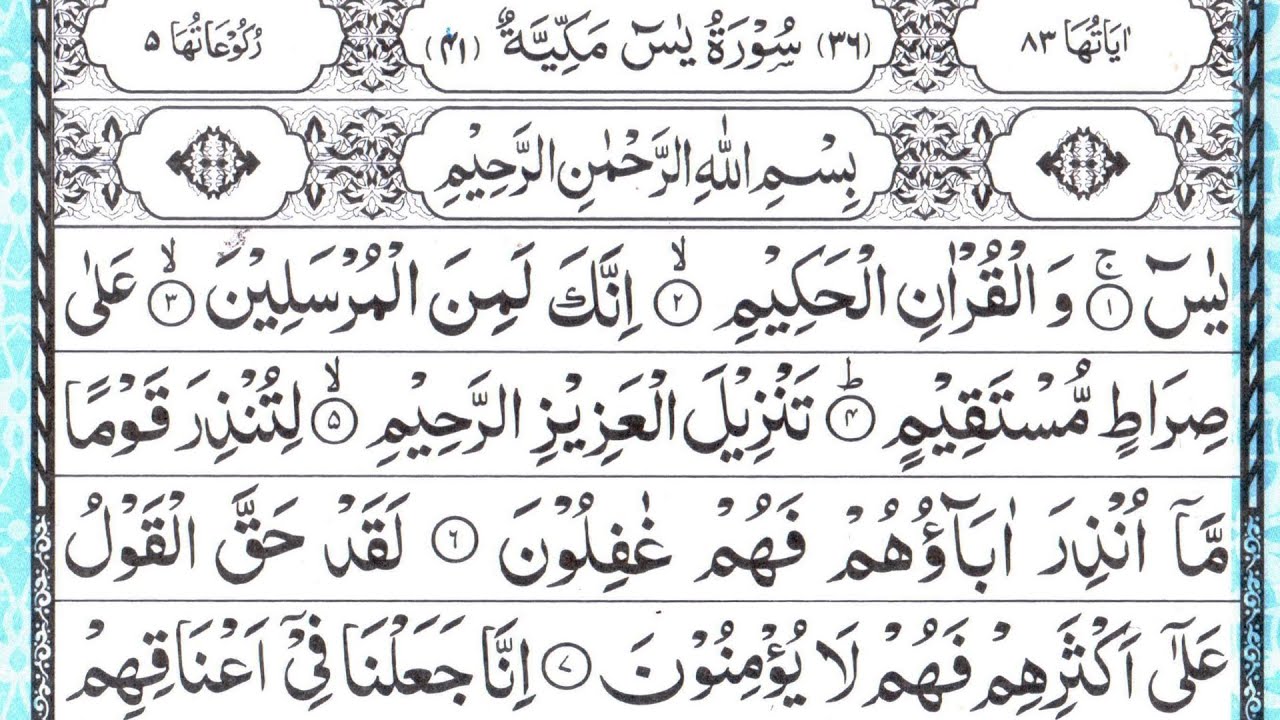 اٰيَاتُهَا ٨٣ (٣٦) سُوْرَةُ يٰسٓ مَكِّيَّةٌ (٤١) رُكُوْعَاتُهَا ٥
بِسْمِ اللّٰهِ الرَّحْمٰنِ الرَّحِيْمِ
يٰسٓ ۚ ١ وَ الْقُرْاٰنِ الْحَكِيْمِ ۙ ٢ اِنَّكَ لَمِنَ الْمُرْسَلِيْنَ ۙ ٣ عَلٰى
صِرَاطٍ مُّسْتَقِيْمٍ ؕ ٤ تَنْزِيْلَ الْعَزِيْزِ الرَّحِيْمِ ۙ ٥ لِتُنْذِرَ قَوْمًا
مَّاۤ اُنْذِرَ اٰبَآؤُهُمْ فَهُمْ غٰفِلُوْنَ ٦ لَقَدْ حَقَّ الْقَوْلُ
عَلٰۤى اَكْثَرِهِمْ فَهُمْ لَا يُؤْمِنُوْنَ ٧ اِنَّا جَعَلْنَا فِيْۤ اَعْنَاقِهِمْ